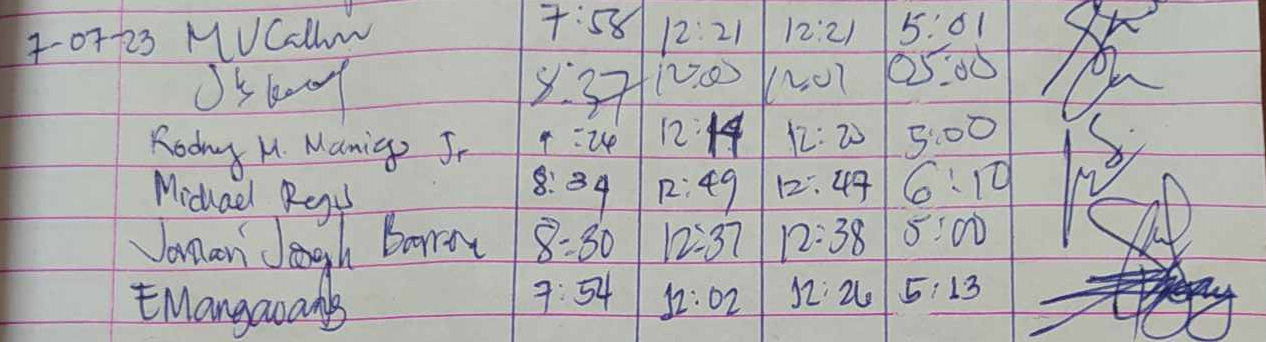 7-07-23 MVCallin 7:58 12:21 12:21 5:01
8:37 12:00 12:01 05:00
Rodney M. Maniego Jr :24 12:14 12:20 5:00
Michael Regis 8:39 12:49 12:47 6:10
Jonlari Joseph 8:30 12:37 12:38 5:00
EMangaoang 7:54 12:02 12:26 5:13